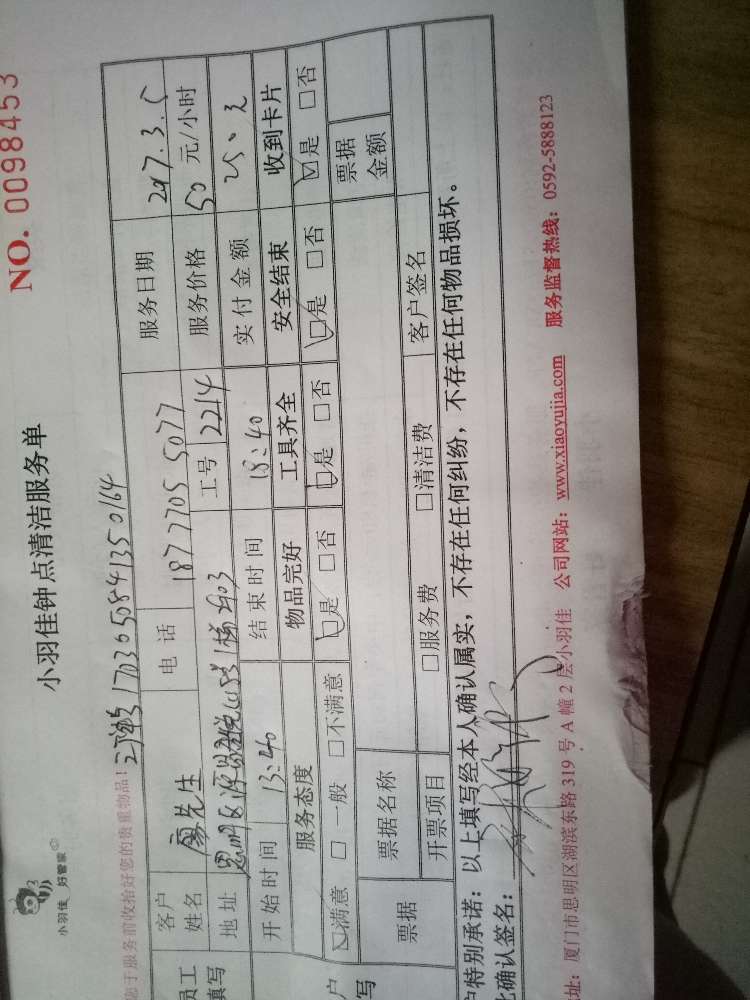 NO. 0098453
小羽佳 好管家
小羽佳钟点清洁服务单
您于服务前收拾好您的贵重物品!
订单号1703050841350164
员工
填写
客户姓名 廖先生 电话 18777055077 服务日期 2017.3.5
地址 思明区 1梯 工号 2214 服务价格 50 元/小时
开始时间 13:40 结束时间 18:40 实付金额 元
服务态度 物品完好 工具齐全 安全结束 收到卡片
☑满意 □一般 □不满意 ☑是 □否 ☑是 □否 ☑是 □否 ☑是 □否
户
写
票据 票据名称 票据金额
开票项目 □服务费 □清洁费 客户签名
户特别承诺:以上填写经本人确认属实,不存在任何纠纷,不存在任何物品损坏。
此确认签名:
址:厦门市思明区湖滨东路 319 号 A 幢 2 层小羽佳 公司网站:www.xiaoyujia.com 服务监督热线:0592-5888123